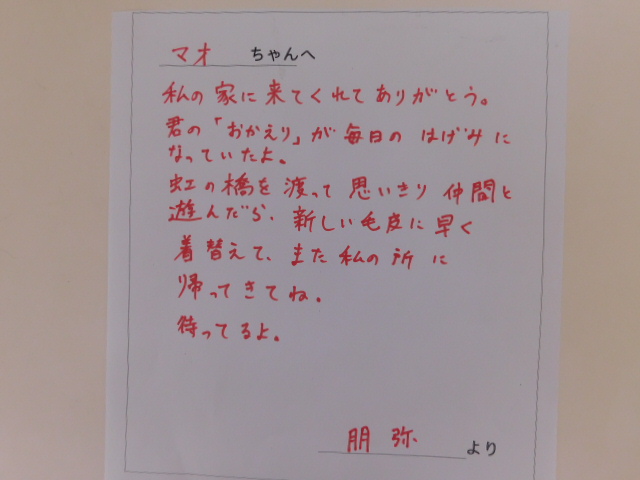 マオ ちゃんへ
私の家に来てくれてありがとう。
君の「おかえり」が毎日のはげみに
なっていたよ。
虹の橋を渡って思いきり仲間と
遊んだら、新しい毛皮に早く
着替えて、また私の所に
帰ってきてね。
待ってるよ。
朋弥 より